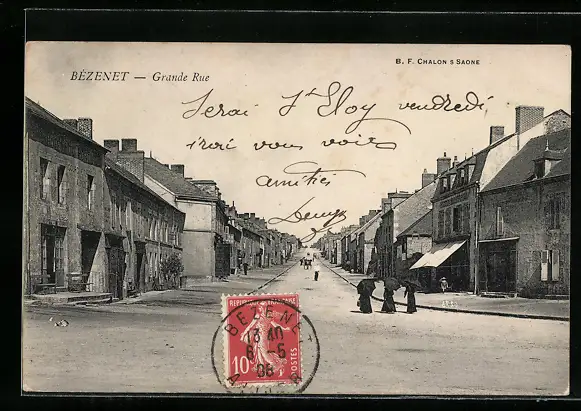 BÉZENET — Grande Rue
B. F. CHALON S SAONE
Serai St Eloy vendredi
irai vous voir
amitiés
REPUBLIQUE FRANÇAISE
10
POSTES
BEZENET
6-5
08